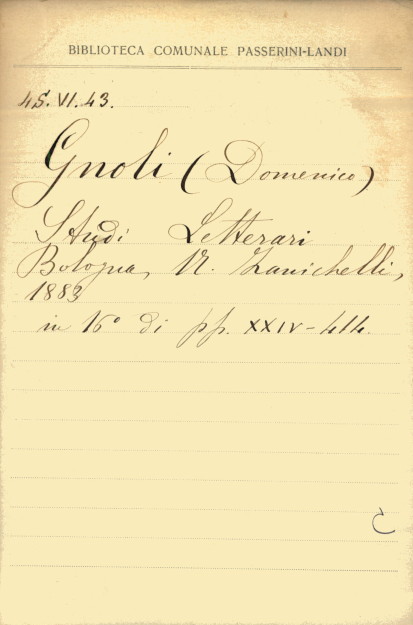 BIBLIOTECA COMUNALE PASSERINI-LANDI
4S.VI.43.
Gnoli (Domenico)
Studi Letterari
Bologna, N. Zanichelli,
1883
in 16° di pp. XXIV-414.